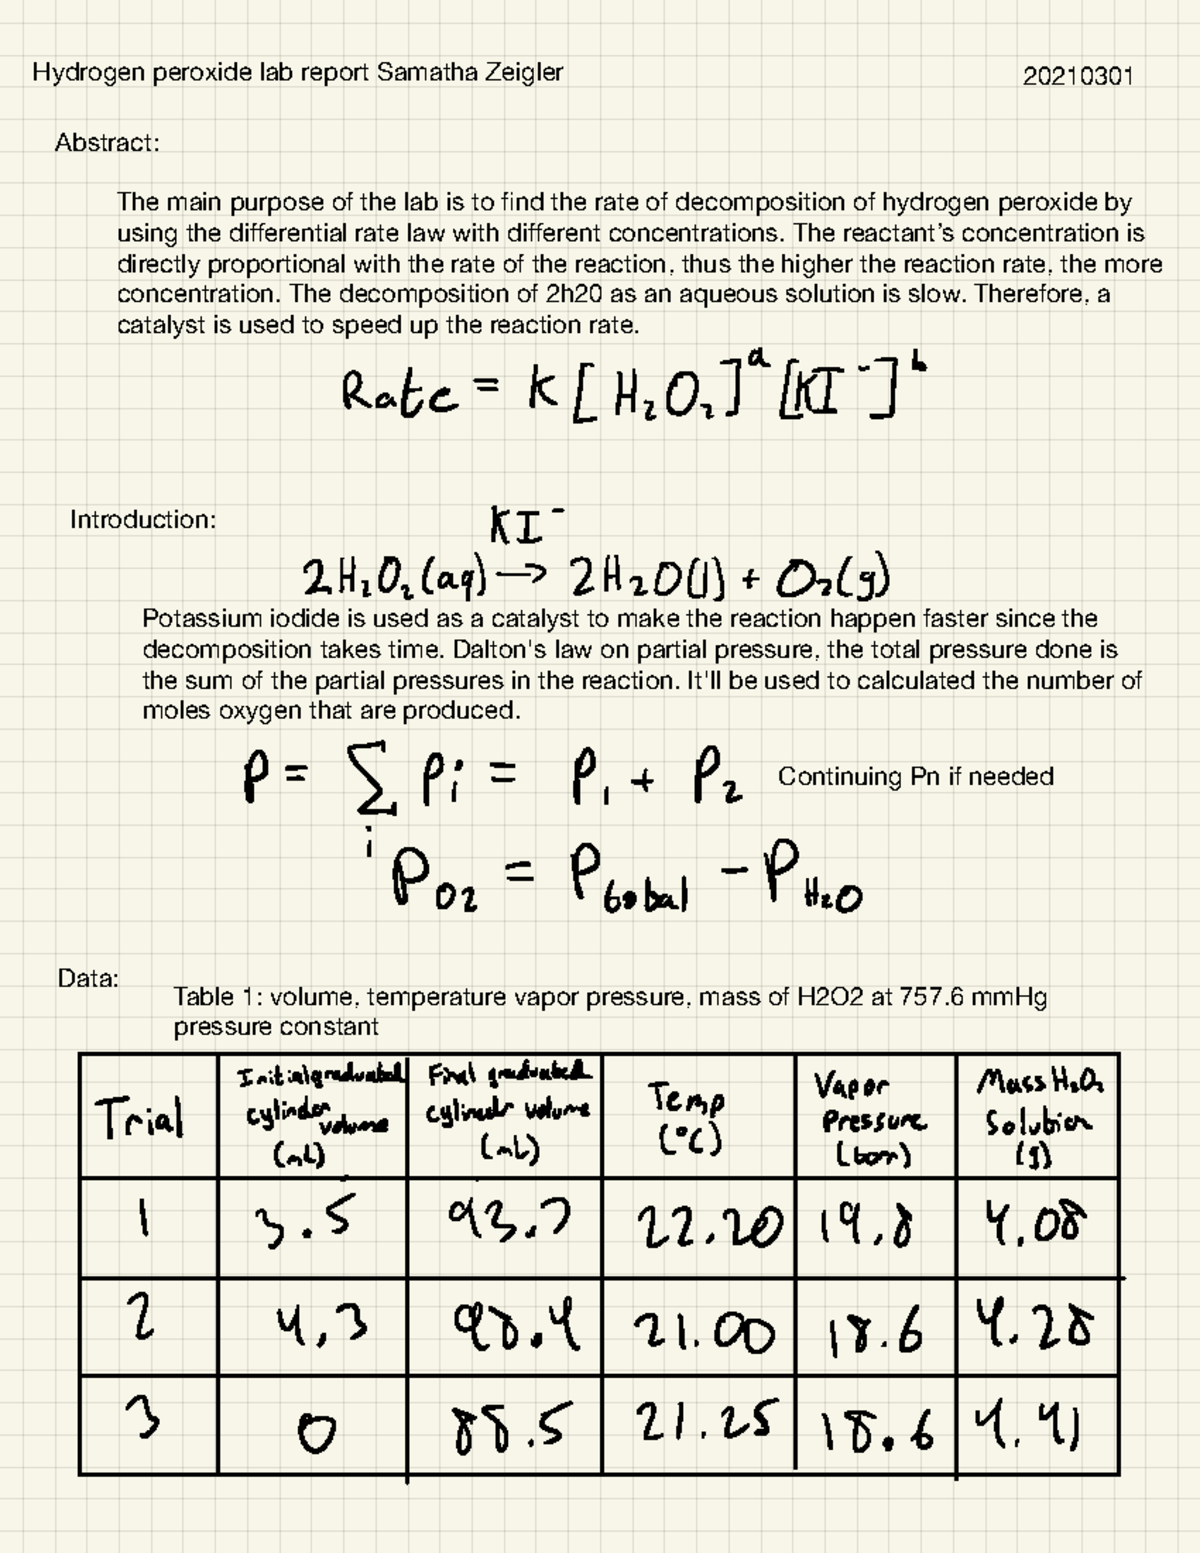 Hydrogen peroxide lab report Samatha Zeigler 20210301
Abstract:
The main purpose of the lab is to find the rate of decomposition of hydrogen peroxide by
using the differential rate law with different concentrations. The reactant's concentration is
directly proportional with the rate of the reaction, thus the higher the reaction rate, the more
concentration. The decomposition of 2h20 as an aqueous solution is slow. Therefore, a
catalyst is used to speed up the reaction rate.
Rate = K[H₂O₂]ᵃ [KI⁻]ᵇ
Introduction:
KI⁻
2H₂O₂(aq) → 2H₂O(l) + O₂(g)
Potassium iodide is used as a catalyst to make the reaction happen faster since the
decomposition takes time. Dalton's law on partial pressure, the total pressure done is
the sum of the partial pressures in the reaction. It'll be used to calculated the number of
moles oxygen that are produced.
P = Σ Pi = P₁ + P₂ Continuing Pn if needed
i
P O2 = P total − P H₂O
Data:
Table 1: volume, temperature vapor pressure, mass of H2O2 at 757.6 mmHg
pressure constant
Trial | Initial graduated cylinder volume (mL) | Final graduated cylinder volume (mL) | Temp (°C) | Vapor Pressure (torr) | Mass H₂O₂ Solution (g)
1 | 3.5 | 93.7 | 22.20 | 19.8 | 4.08
2 | 4.3 | 98.4 | 21.00 | 18.6 | 4.28
3 | 0 | 88.5 | 21.25 | 18.6 | 4.41